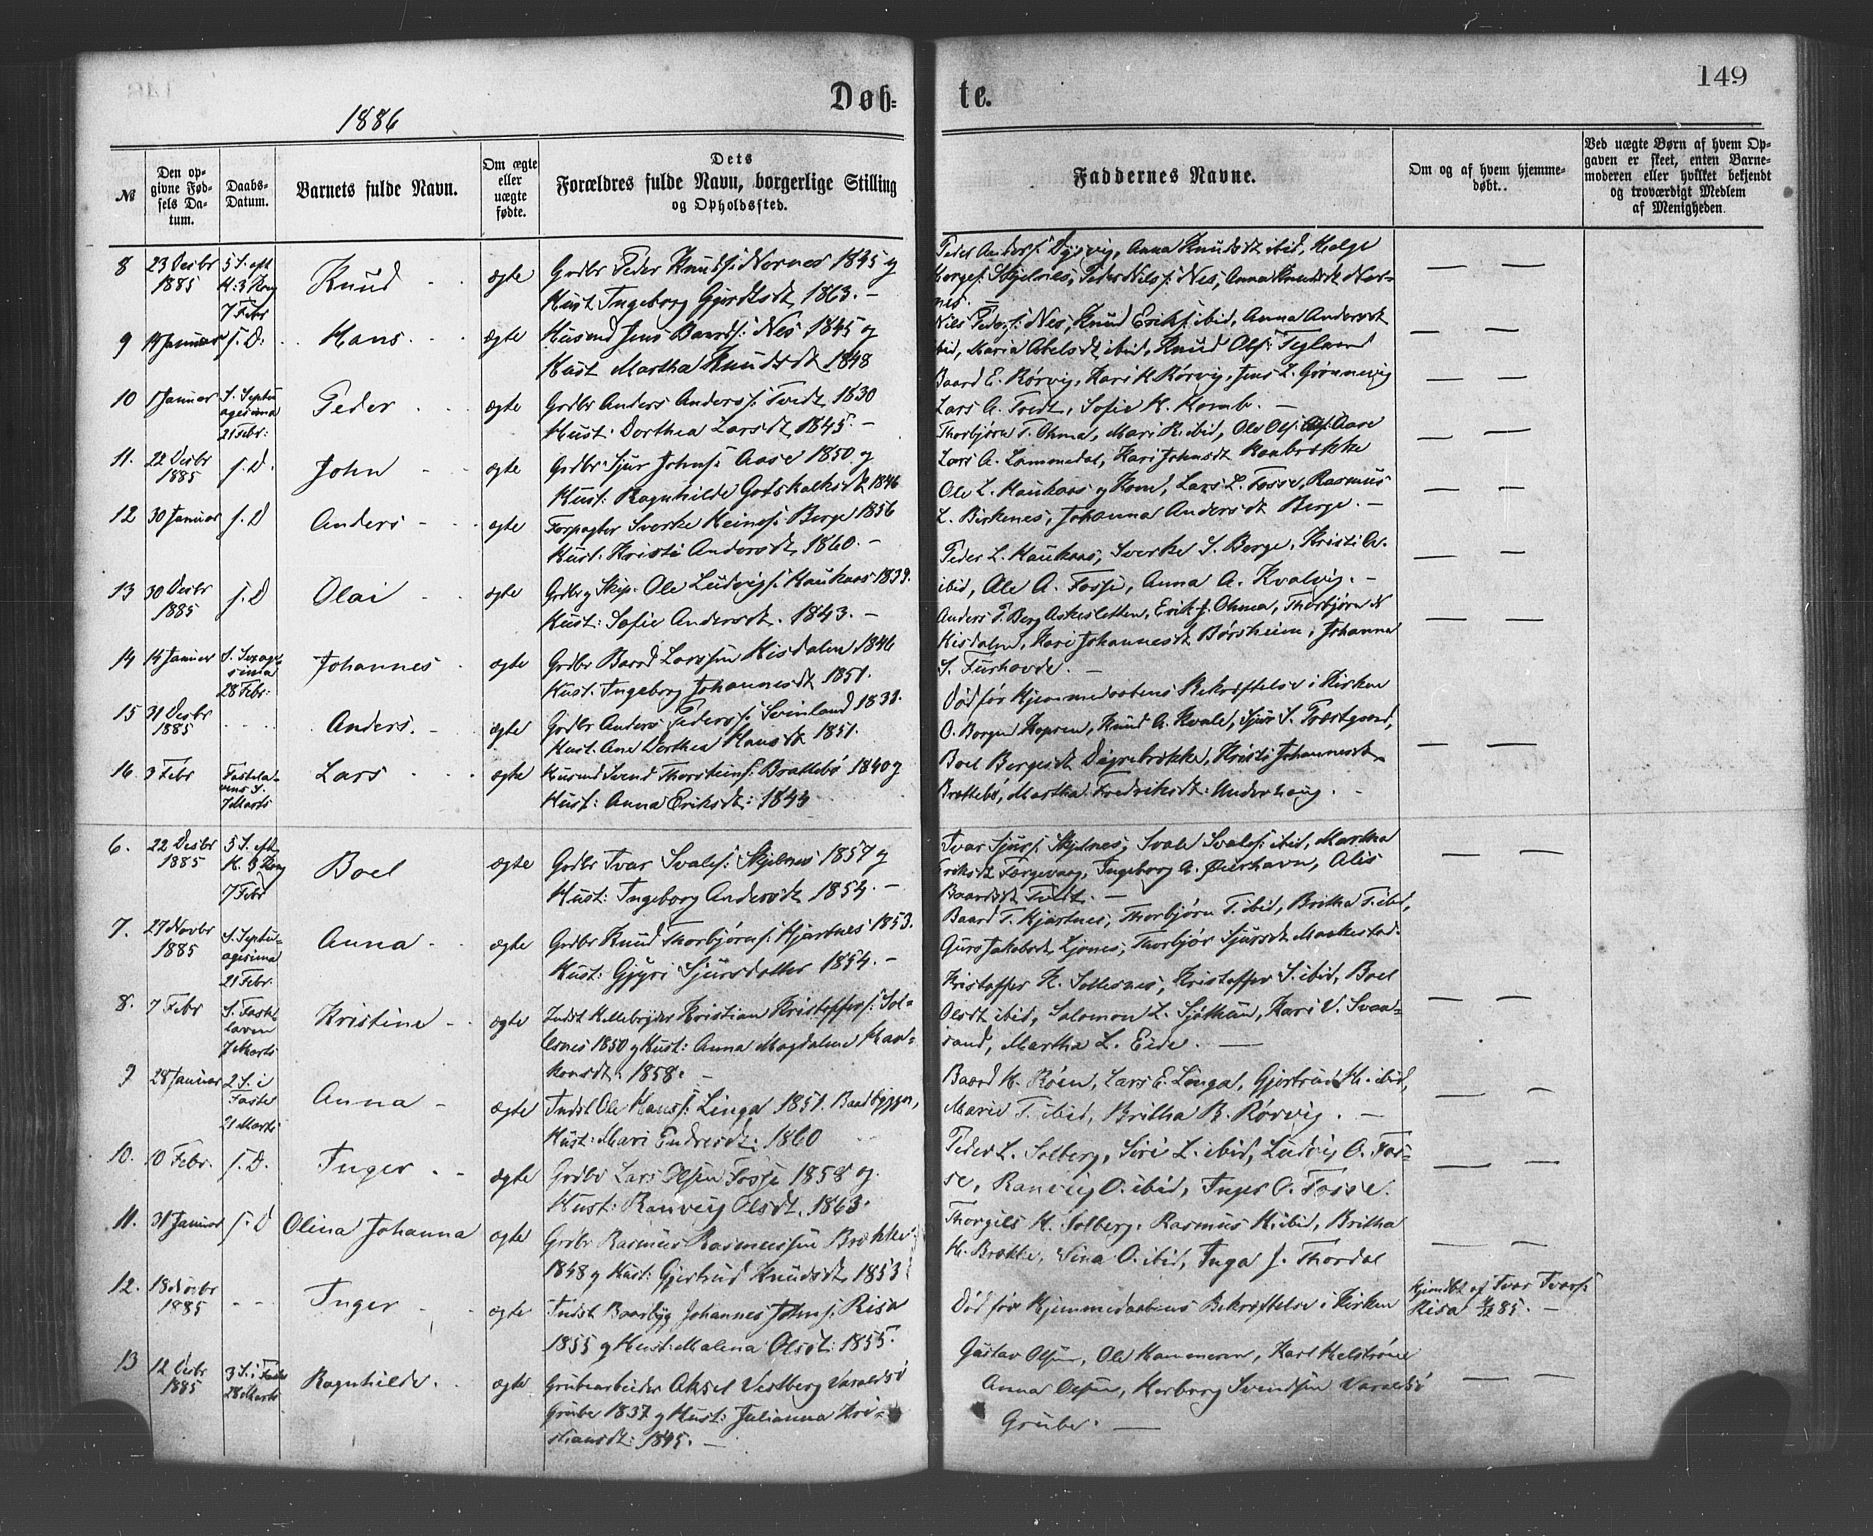 149
Døb=
te.
1886
№
Den op-
givne Fød-
sels Da-
tum.
Daabs-
Datum.
Barnets fulde Navn.
Om ægte
eller
uægte
fødte.
Dets
Forældres fulde Navn, borgerlige Stilling
og Opholdssted.
Faddernes Navne.
Om og af hvem hjemme-
døbt.
Ved uægte Børn af hvem Op-
gaven er skeet, enten Barne-
moderen eller hvilket bekjendt
og troværdigt Medlem
af Menigheden.
8 23 Desbr 5 S. eft Knud ægte Grdbr Peder Knuds: Nornes 1845 og
1885 H. 3 Kong Hust. Ingeborg Gjerdtsdt 1863. —
7 Febr
Peder Anders: Dysvig, Anna Knudsdt ibid, Helge
Skjelnes, Peder Nils: Nes, Anna Knudsdt Nor-
nes. —
9 14 Januar s. D. Hans ægte Husmd Jens Baards: Nes 1845 og
Hust Martha Knudsdt 1848
Nils Peders: Nes, Knud Eriks: ibid, Anna Andersdt
ibid, Maria Abelsdt ibid, Knud Ols: Teglland
10 1 Januar S. Septu- Peder ægte Grdbr Anders Anders: Tvedt 1830
agesima Hust: Dorthea Larsdt 1845. —
21 Febr:
Baard E. Rørvig, Kari H. Rørvig, Jens L. Grønnevig
Lars A. Tvedt, Sofie H. —
11. 22 Desbr s. D. John ægte Grdbr Sjur Johns: Aase 1850 og
1885 Hust: Ragnhilde Godskalksdt 1846
Thorbjørn T. Ohma, Mari K. ibid, Ole Ols: Aase
Lars A. Lammedal, Kari Johnsdt
12 30 Januar s. D Anders ægte Forpagter Sverke Heines: Berge 1856
Hust: Kristi Andersdt 1860. —
Ole L. Haukaas og Kone, Lars L. Fosse, Rasmus
L. Birkenes, Johanna Andersdt Berge. —
13 30 Desbr s. D Olai ægte Grdbr og Skip. Ole Ludvigs: Haukaas 1839.
1885 Hust: Sofie Andersdt. 1843. —
Peder L. Haukaas, Sverke S. Berge, Kristi A.
ibid, Ole A. Fosse, Anna A. Kvalvig. —
14 14 Januar S. Sexage- Johannes ægte Grdbr Baard Larssen Kisdalen 1846
sima Hust: Ingeborg Johannesdt 1851.
28 Febr:
Anders T. Berg Askesletten, Erik J. Ohma, Thorbjørn N
Kisdalen, Kari Johannesdt Børsheim, Johanna
S. Furhovde. —
15 31 Desbr Anders. ægte Grdbr Anders Peders: Svinland 1838.
1885 Hust. Ane Dorthea Hansdt 1851.
Død før Hjemmedaabens Bekræftelse i Kirken
16 3 Febr Fastela- Lars ægte Husmd Svend Thorsteins: Brattebø 1840 og
vens S. Hust: Anna Eriksdt: 1844
7 Marts
O. Borgen Kopren, Knud A. Kvale, Sjur S.
Boel Bergesdt Digrebrekke, Kristi Johannesdt
Brattebø, Martha Fredriksdt: Underhaug. —
6. 22 Desbr 5 S. eft Boel ægte Grdbr Ivar Svales: Skjelnes 1857 og
1885 H. 3 Kong Hust: Ingeborg Andersdt 1854. —
7 Febr
Ivar Sjurs: Skjelnes, Svale Svales: ibid, Martha
Eriksdt Færgevaag, Ingeborg A. Øierhavn, Alis
Baardsdt Tvedt. —
7. 27 Novbr S. Septu- Anna ægte Grdbr Knud Thorbjørns: Hjartnes 1853.
1885 agesima Hust: Gjyri Sjursdatter 1854. —
21 Febr.
Baard T. Hjartnes, Thorbjørn T. ibid, Britha T. ibid,
Guro Jakobsdt Ljones, Thorbjør Sjursdt Maakestad.
8. 7 Febr S. Faste- Kristine ægte Indst Hellebryder Kristian Kristoffers: Sol-
laven lesnes 1850 og Hust: Anna Magdalene Haa-
7 Marts konsdt 1858. —
Kristoffer K. Sollesnes, Kristoffer S. ibid, Boel
Olsdt ibid, Salomon L. Sjøthun, Kari V. Svaa-
sand, Martha L. Eide. —
9 28 Januar 2 S. i Anna ægte Indst Ole Hans: Linga 1851. Baadbygger,
Faste Hust: Mari Endresdt: 1860
21 Marts
Baard H. Røen, Lars E. Linga, Gjertrud H. ibid,
Marie T. ibid, Britha B. Rørvig. —
10. 10 Febr. s. D. Inger ægte Grdbr Lars Olsen Fosse 1858 og
Hust: Ranveig Olsdt. 1863.
Peder L. Solberg, Siri L. ibid, Ludvig O. Fos-
se, Ranveig O. ibid, Inger O. Fosse.
11. 31 Januar s. D Olina Johanna ægte Grdbr Rasmus Rasmussen Brekke
1848 og Hust: Gjertrud Knudsdt 1853
Thorgils H. Solberg, Rasmus K. ibid, Britha
H. Brekke, Sina O. ibid, Inga J. Thordal
12. 18 Novbr Inger ægte Indst Baadbyg Johannes Johns: Risa
1885 1855 og Hust: Malena Olsdt: 1855.
Død før Hjemmedaabens Bekræftelse i Kirken
Hjemdbt af Ivar Ivars:
Risa 85. —
13 12 Desbr 3 S. i Faste Ragnhilde. ægte Grubearbeider Aksel Vestberg Varaldsø
1885 28 Marts Grube 1837 og Hust: Julianna Kri-
stiansdt: 1845. —
Gustav Olsen, Ole Hammeren, Karl Helstrøm
Anna Olsen, Herborg Svendsen Varaldsø
Grube. —